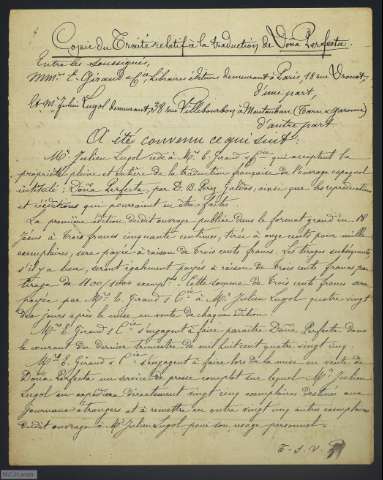 Copie du Traité relatif à la traduction de Doña Perfecta.
Entre les soussignés,
MM. E. Giraud & Cie Libraires éditeurs demeurant à Paris, 18 rue Drouot,
d'une part,
Et Mr Julien Lugol demeurant, 38 rue Villebourbon à Montauban (Tarn & Garonne)
d'autre part.
A été convenu ce qui suit:
Mr Julien Lugol cède à MM. E. Giraud & Cie qui acceptent la
propriété pleine et entière de la traduction française de l'ouvrage espagnol
intitulé: Doña Perfecta, par D. B. Pérez Galdós, ainsi que les reproductions
et rééditions qui pourraient en être faites.
La première édition dudit ouvrage publiée dans le format grand in-18
jésus à trois francs cinquante centimes, tirée à onze cents pour mille
exemplaires, sera payée à raison de trois cents francs. Les tirages subséquents,
s'il y a lieu, seront également payés à raison de trois cents francs par
tirage de 1100/1000 exempl. Cette somme de trois cents francs sera
payée par MM. E. Giraud & Cie à Mr Julien Lugol quatre vingt
dix jours après la mise en vente de chaque édition.
MM. E. Giraud & Cie s'engagent à faire paraître Doña Perfecta dans
le courant du dernier trimestre de mil huit cent quatre vingt cinq.
MM. E. Giraud & Cie s'engagent à faire lors de la mise en vente de
Doña Perfecta un service de presse complet sur lequel Mr Julien
Lugol en expédiera directement vingt cinq exemplaires destinés aux
journaux étrangers et à remettre en outre vingt cinq autres exemplaires
dudit ouvrage à Mr Julien Lugol pour son usage personnel.
T. S. V. P.